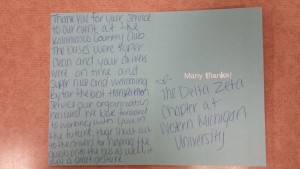 Thank you for your service
to our event at the
Kalamazoo Country Club.
The buses were super
clean and your drivers
were on time and
super nice and welcoming.
by far the best transportation
service our organization
has used. We look forward
to working with you in
the future. Huge shout out
to the drivers for helping the
guests onto the bus as well, it
was a great gesture.
Many thanks!
The Delta Zeta
Chapter at
Western Michigan
University